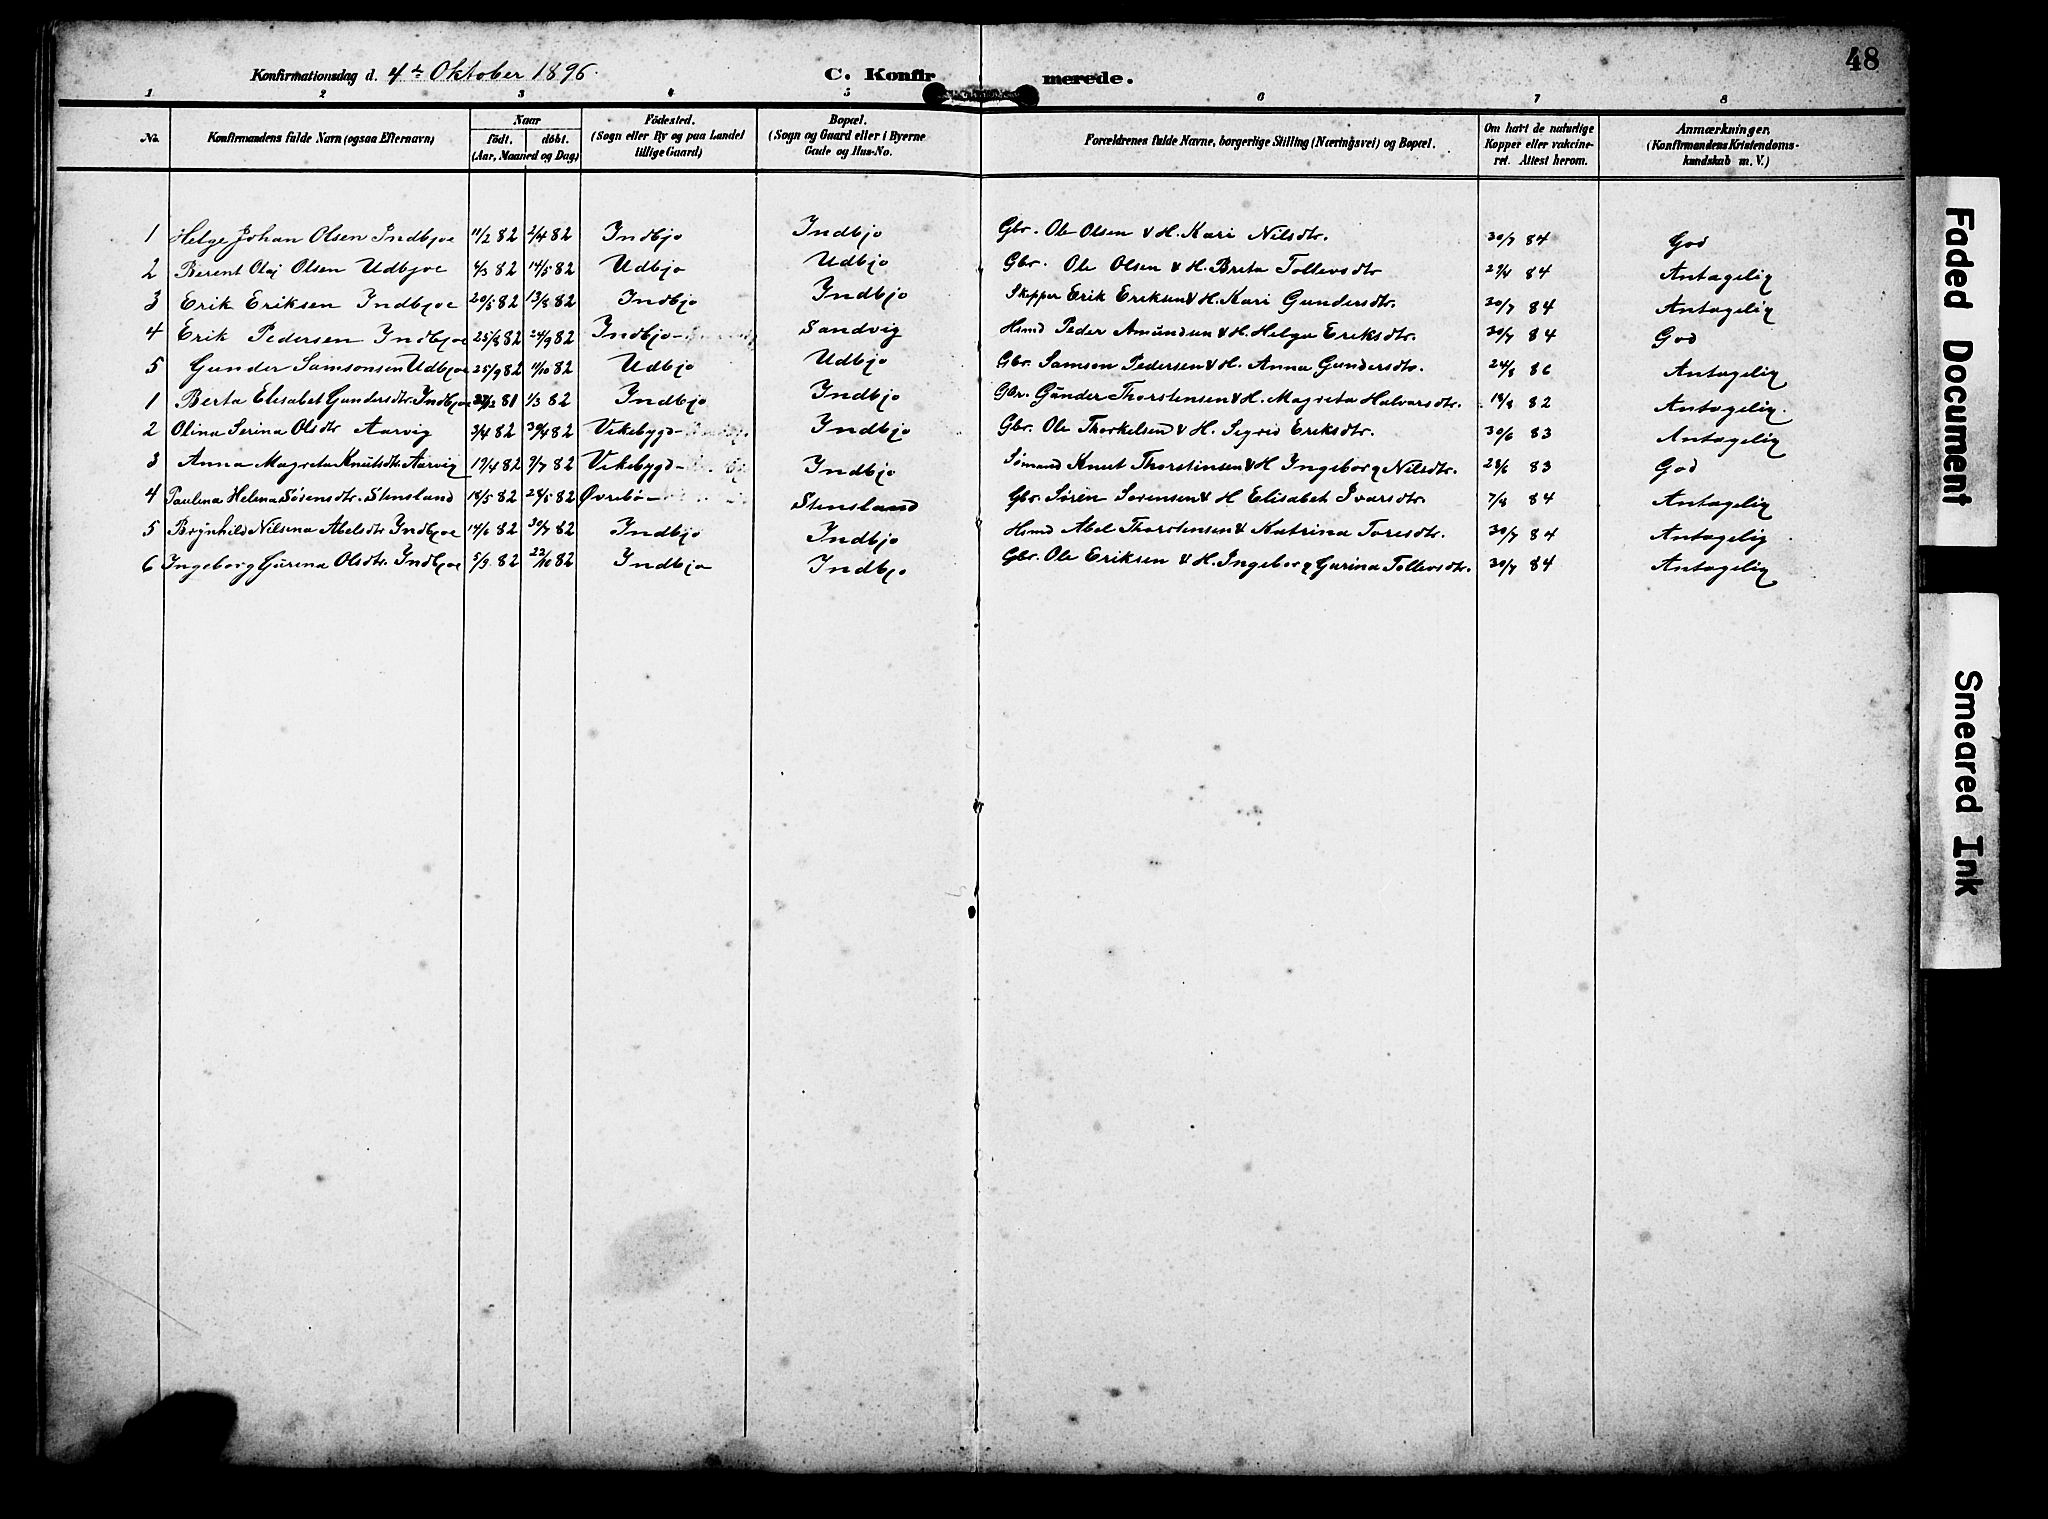 48
Konfirmationsdag d. 4de Oktober 1896. C. Konfirmerede.
1 2 3 4 5 6 7 8
No. Konfirmandens fulde Navn (ogsaa Efternavn) Naar födt. döbt. (Aar, Maaned og Dag) Födested. (Sogn eller By og paa Landet tillige Gaard) Bopæl. (Sogn og Gaard eller i Byerne Gade og Hus-No. Forældrenes fulde Navne, borgerlige Stilling (Næringsvei) og Bopæl. Om havt de naturlige Kopper eller vakcineret. Attest herom. Anmærkninger. (Konfirmandens Kristendomskundskab m. V.)
1 Helge Johan Olsen Indbjoe 11/2 82 2/4 82 Indbjo Indbjo Gbr. Ole Olsen & H. Kari Nilsdtr. 30/7 84 God
2 Berent Olaj Olsen Udbjoe 4/3 82 14/5 82 Udbjo Udbjo Gbr. Ole Olsen & H. Breta Tollevsdtr 29/4 84 Antagelig
3 Erik Eriksen Indbjoe 20/5 82 13/8 82 Indbjo Indbjo Skipper Erik Eriksen & H. Kari Gundersdtr. 30/7 84 Antagelig
4 Erik Pedersen Indbjoe 25/8 82 24/9 82 Indbjo- Sandvig Hsmd Peder Amundsen & H. Helga Eriksdtr. 30/7 84 God
5 Gunder Samsonsen Udbjoe 25/9 82 11/10 82 Udbjo Udbjo Gbr. Samson Pedersen & H. Anna Gundersdtr. 24/8 86 Antagelig
1 Berta Elisabet Gundersdtr. Indbjoe 81 1/3 82 Indbjo Indbjo Gbr. Gunder Thorstensen & H. Magreta Halvarsdtr. 18/8 82 Antagelig.
2 Olina Serina Olsdtr Aarvig 3/4 82 30/4 82 Vikebygd- Indbjo Gbr. Ole Thorkelsen & H. Sigrid Eriksdtr. 30/6 83 Antagelig
3 Anna Magreta Knutsdtr. Aarvig 19/4 82 9/7 82 Vikebygd- Indbjo Sømand Knut Thorstinsen & H Ingeborg Nilsdtr. 28/6 83 God
4 Paulina Helena Sörensdtr. Stensland 18/5 82 29/5 82 Øvrebø- Stensland Gbr. Sören Sorensen & H Elisabet Ivarsdtr. 7/8 84 Antagelig
5 Brynhild Nilsina Abelsdtr Indbjoe 14/6 82 30/7 82 Indbjo Indbjo Hsmd Abel Thorstensen & Katrina Toresdtr. 30/7 84 Antagelig
6 Ingeborg Gurina Olsdtr. Indbjoe 5/9 82 22/10 82 Indbjo Indbjo Gbr. Ole Eriksen & H. Ingeborg Gurina Tollevsdtr. 30/7 84 Antagelig
Faded Document
Smeared Ink